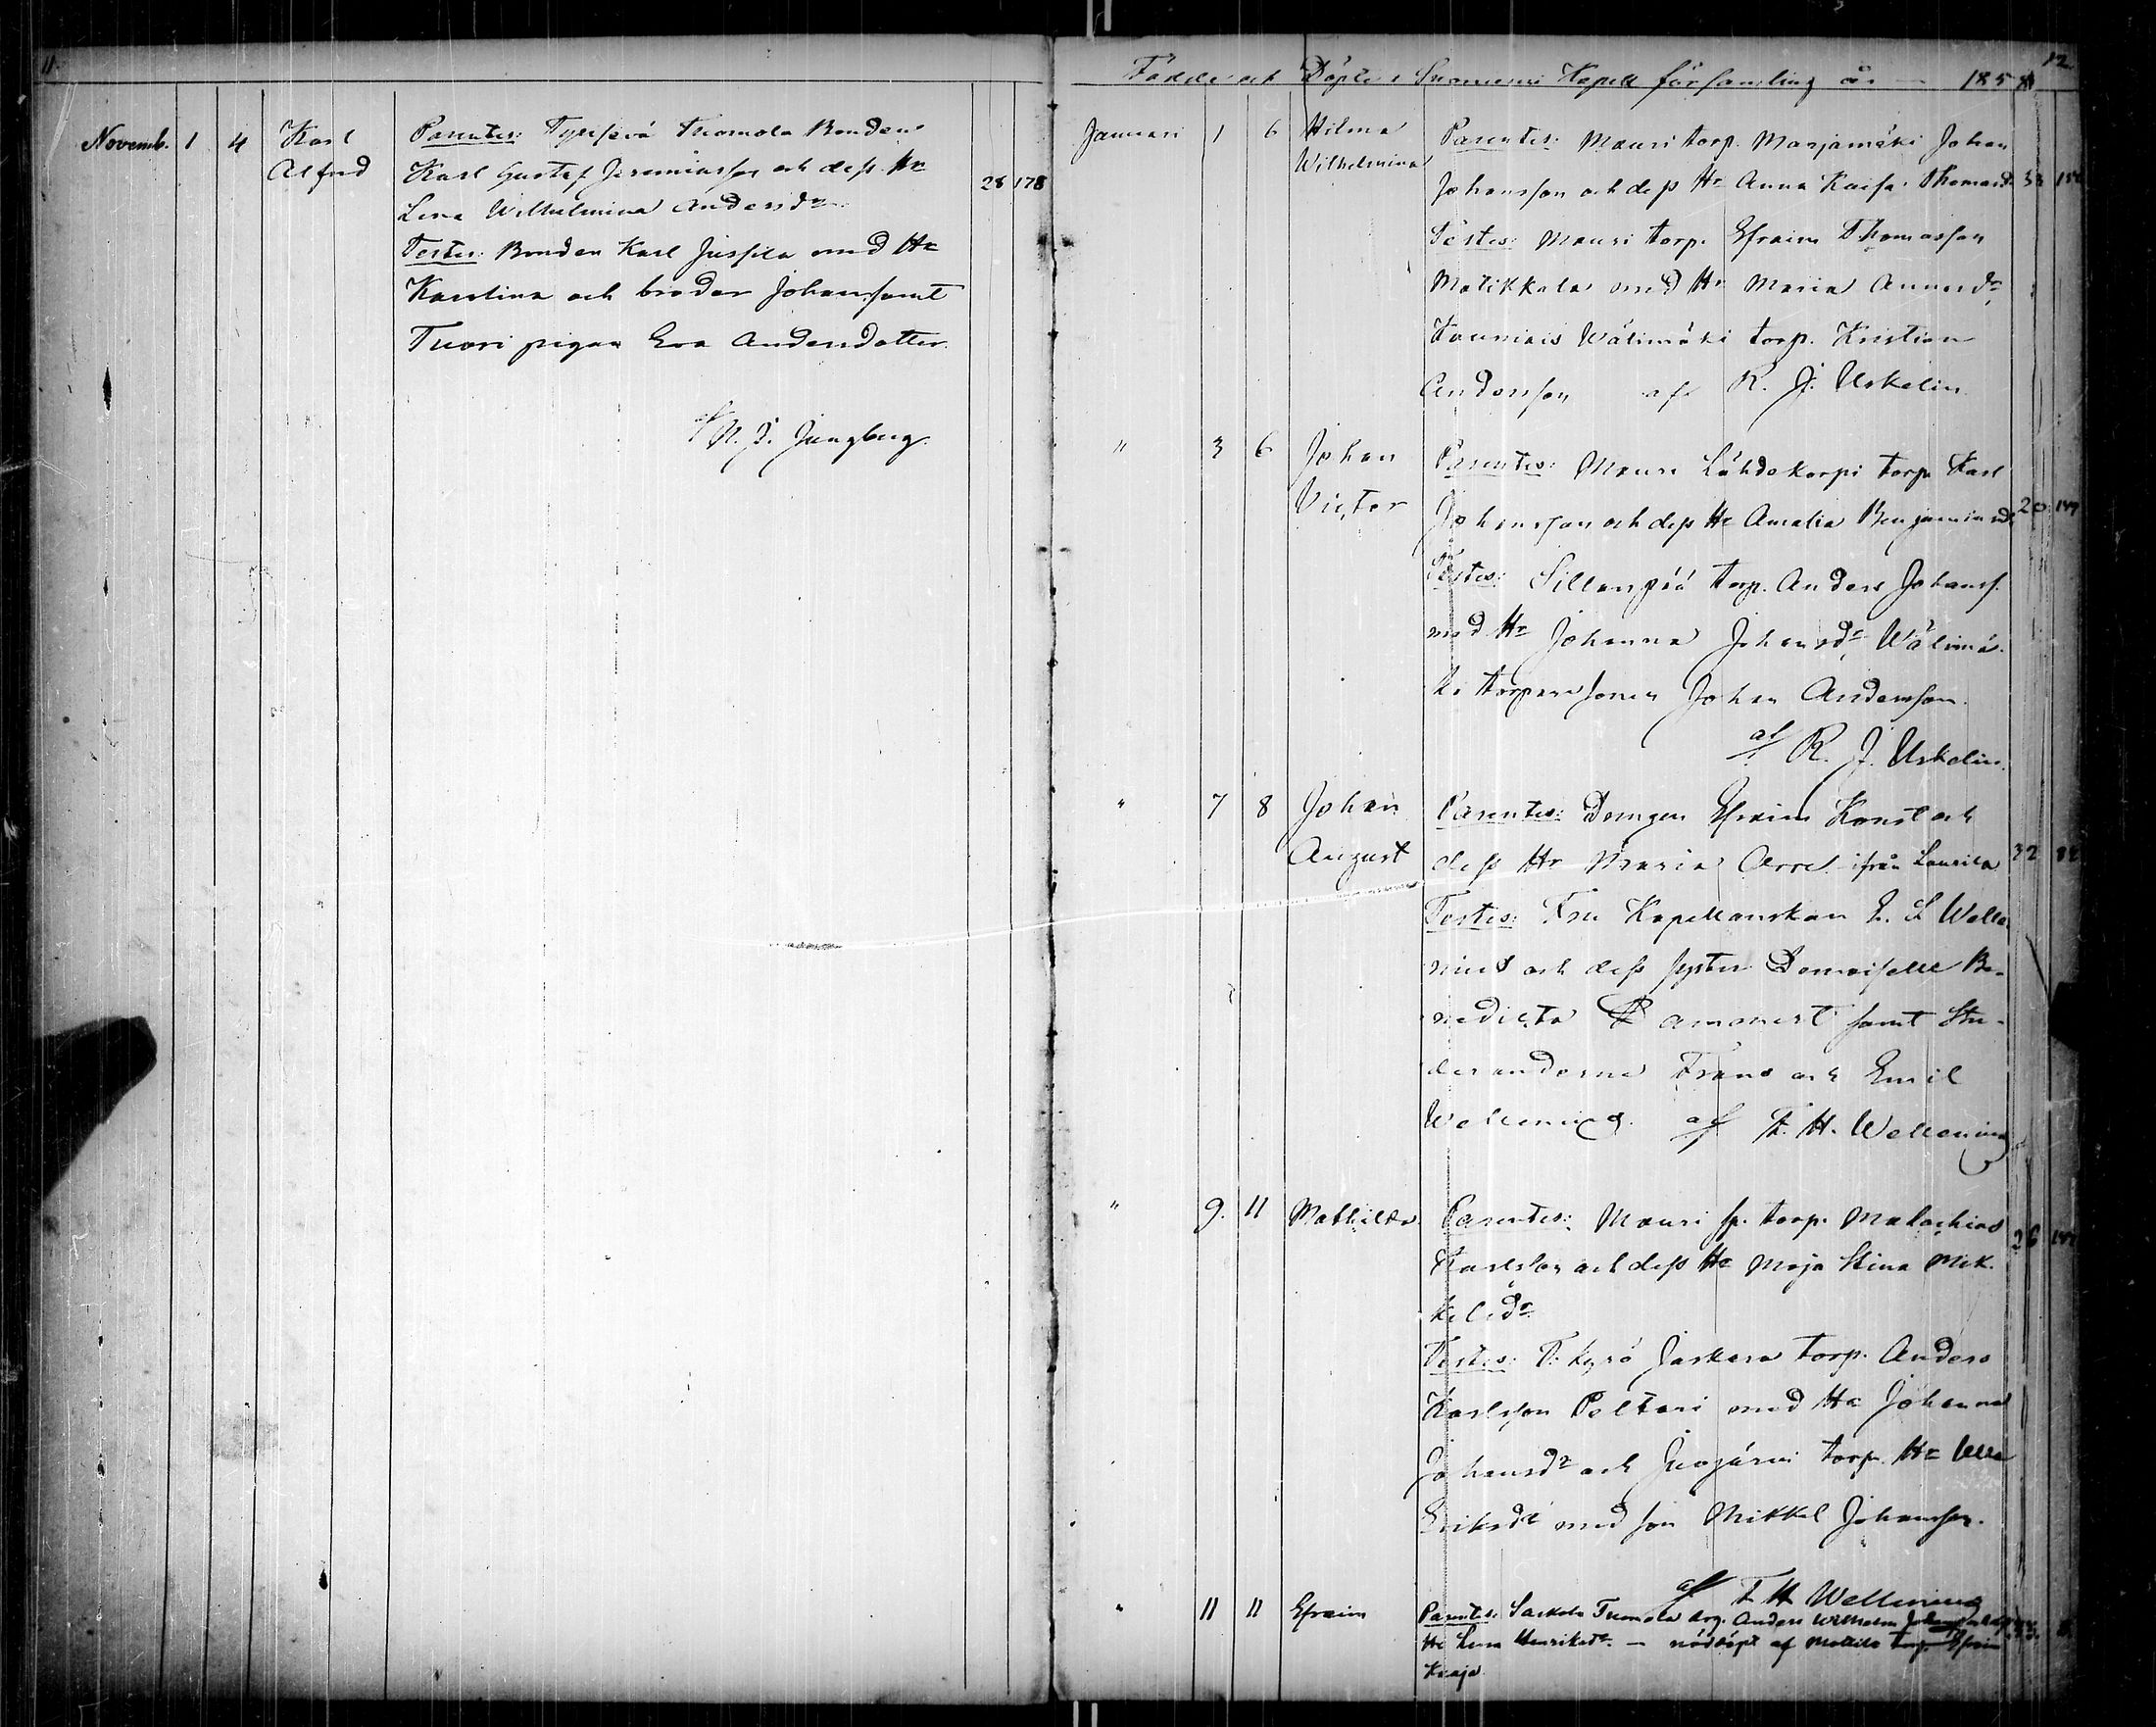 11.
Novemb. 1 4 Karl Alfred
Parentes: Tyrisevä Tuomola Bonden
Karl Gustaf Jeremiasson och dess Hu
Lena Wilhelmina Andersdr
28 178
Testes: Bonden Karl Jussila med Hu
Karolina och broder Johan, samt
Tuori pigan Eva Andersdotter.
af N. J. Jungberg.
12.
Födde och Döpte i Suomenni Kapell församling år 185
Januari 1 6 Hilma Wilhelmina
Parentes: Mauri torp. Marjamäki Johan
Johansson och dess Hu Anna Kaisa Thomasdr
Testes: Mauri torp. Efraim Thomasson
Matikkala med Hu Maria
Kauniais Wälimäki torp. Kristian
Andersson af R. J. Uskelin.
" 3 6 Johan Victor
Parentes: Mauri Lähdekorpi torp. Karl
Johansson och dess Hu Amalia Benjaminsdr
20 149
Testes: Sillanpää torp. Anders Johanss.
med Hu Johanna Johansdr, Wälimä-
ki torparesonen Johan Andersson.
af R. J. Uskelin.
" 7 8 Johan August
Parentes: Drengen Efraim Konst och
dess Hu Maria ifrån Laurila
32
Testes: Fru Kapellanskan L. Welle-
nius och dess syster Demoiselle Be-
nedicta Rammert samt Stu-
derandorne Frans och Emil
Wellenius. af F. H. Wellenius
" 9. 11 Mathilda.
Parentes: Mauri sp. torp. Malachias
Karlsson och dess Hu Maja Stina Mik-
kelsdr
26
Testes: T. Kyrö Jaskara torp. Anders
Karlsson Peltari med Hu Johanna
Johansdr och Juojärvi torp. Hu Ulla
Eriksdr med son Mikkel Johansson.
af F H Wellenius
" 11 11 Efraim
Parentes: Sarkola Tuomola drg. Anders Wilhelm
Hu Lena Henriksdr. — nöddöpt af Mattila torp. Efraim
Kraja